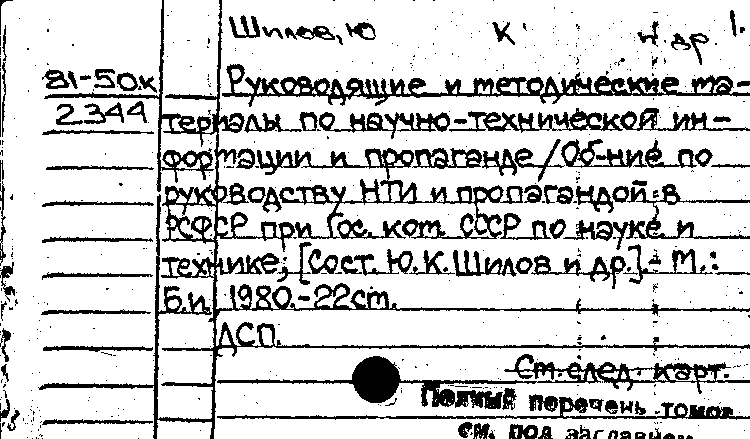 Шилов, Ю К и др 1.
81-50.к Руководящие и методические ма-
2344 териалы по научно-технической ин-
формации и пропаганде/Об-ние по
руководству НТИ и пропагандой в
РСФСР при Гос. ком. СССР по науке и
технике; [Сост. Ю.К.Шилов и др.].- М.:
Б.и. 1980.-22ст.
ДСП.
См. след. карт.
Полный перечень томов
см. под заглавием